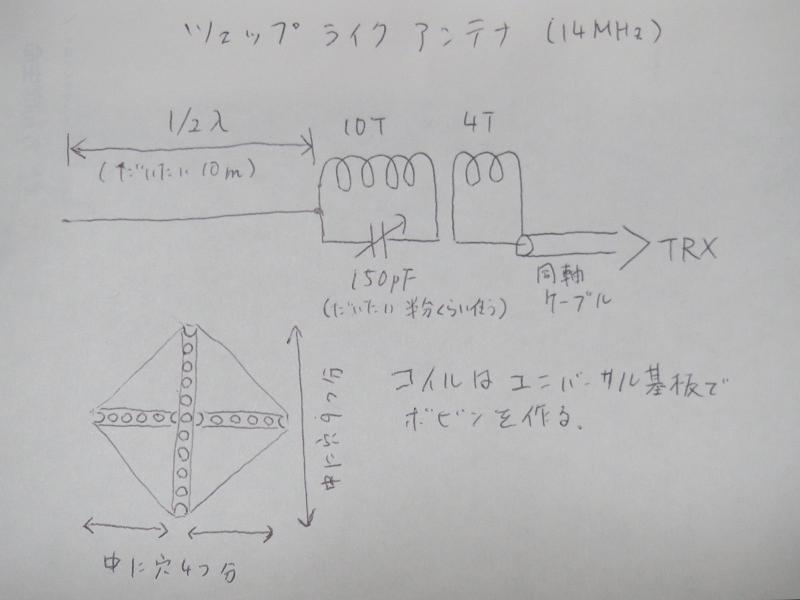 ツェップライクアンテナ (14MHz)
1/2λ
(だいたい 10m)
10T
4T
150pF
(だいたい 半分くらい使う)
同軸
ケーブル
TRX
中に穴9つ分
中に穴4つ分
コイルは ユニバーサル基板で
ボビンを作る.